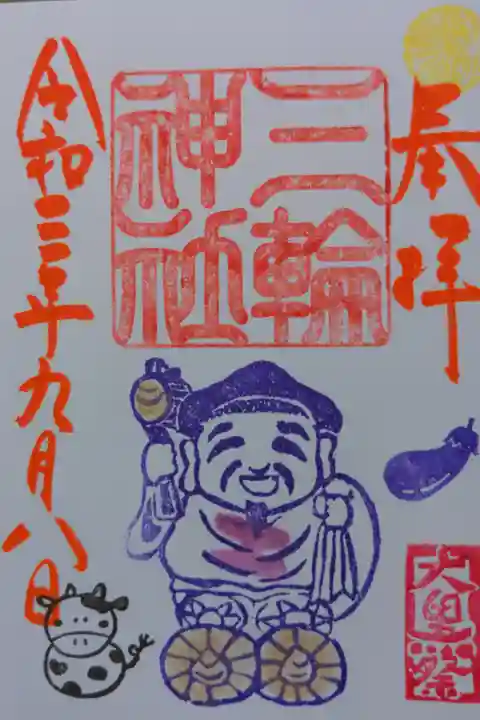 奉拝
三輪
神社
令和三年九月八日
大黒祭